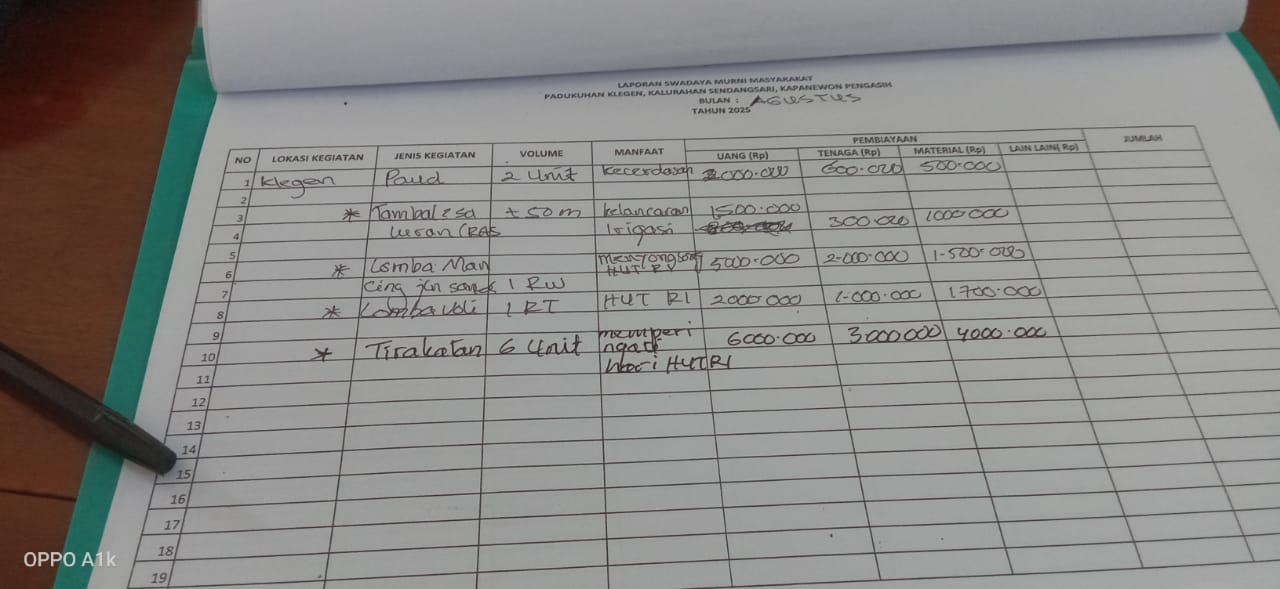 LAPORAN SWADAYA MURNI MASYARAKAT
PADUKUHAN KLEGEN, KALURAHAN SENDANGSARI, KAPANEWON PENGASIH
BULAN : AGUSTUS
TAHUN 2025
NO LOKASI KEGIATAN JENIS KEGIATAN VOLUME MANFAAT PEMBIAYAAN JUMLAH
UANG (Rp) TENAGA (Rp) MATERIAL (Rp) LAIN LAIN( Rp)
1 Klegen Paud 2 Unit Kecerdasan 2000.000 600.000 500.000
2
3 * Tambal ± 50 m kelancaran 1500.000 300.000 1000 000
4 luran Irigasi
5
6 * Lomba Man menyongsong HUT RI 5000.000 2.000.000 1.500.000
7 cing jln 1 RW
8 * Lomba voli 1 RT HUT RI 2000 000 1.000.000 1700.000
9
10 * Tirakatan 6 Unit memperi ngati 6000.000 3000000 4000.000
11 hari HUT RI
12
13
14
15
16
17
18
19
OPPO A1k